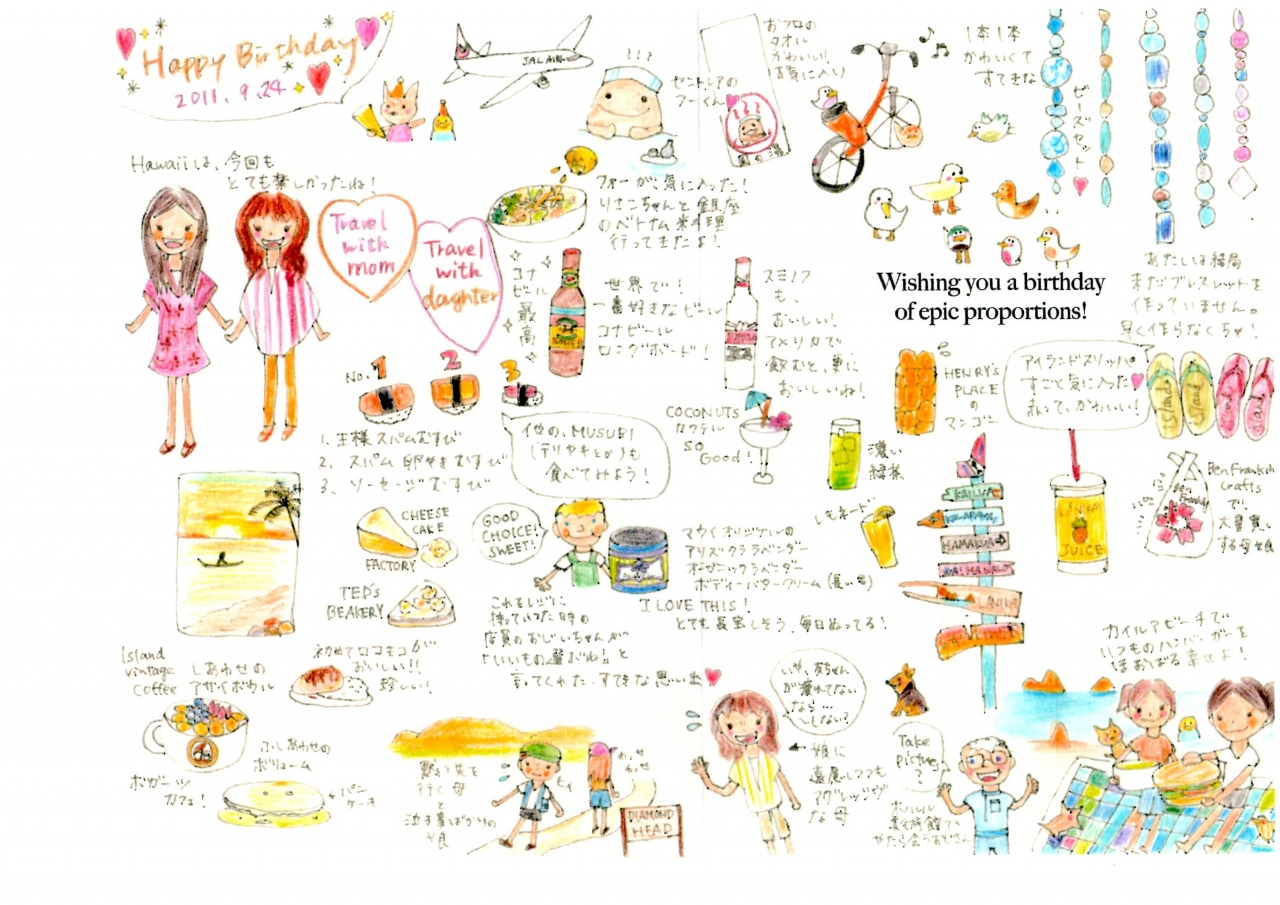 Happy Birthday
2011. 9. 24
JAL
セントレアの
フーくん
おフロの
タオル
かわいい!
お気に入り
1本1本
かわいくて
すてきな
ビーズセット
Hawaiiは、今回も
とても楽しかったね!
Travel
with
mom
Travel
with
daghter
フォーが、気に入った!
りさこちゃんと銀座
のベトナム料理
行ってきたよ!
コナ
ビール
最高
世界で!
一番好きなビール
コナビール
ロングボード!
スミノフ
も、
おいしい!
アメリカで
飲むと、更に
おいしいね!
Wishing you a birthday
of epic proportions!
あたしは結局
まだブレスレットを
作っていません。
早く作らなくちゃ!
No. 1
2
3
1. 王様スパムむすび
2. スパム卵やきむすび
3. ソーセージむすび
他の、MUSUBI
(テリヤキとか)も
食べてみよう!
COCONUTS
カクテル
SO
Good!
濃い
緑茶
HENRY'S
PLACE
の
マンゴー
アイランドスリッパ
すごく気に入った
かわいい!
Island
CHEESE
CAKE
FACTORY
TED's
BEAKERY
GOOD
CHOICE!
SWEET!
マウイオリジナルの
オーガニックラベンダー
ボディーバタークリーム
I LOVE THIS!
とても長宝しそう、毎日ぬってる!
これをレジに
持っていった時の
店員のおじいちゃんが
「いいもの選ぶね!」と
言ってくれた、すてきな思い出
レモネード
KAILUA
HAMAKUA
LANIKAI
JUICE
Ben Franklin
crafts
で、
大量買い
する母娘
Island
vintage
coffee
しあわせの
アサイボウル
初めてロコモコが
おいしい!!
珍しい!
ふしあわせの
ボリューム
ボガーツ
カフェ!
パン
ケーキ
黙々と先を
行く母
と
泣き事ばかりの
娘
DIAMOND
HEAD
いや、あちゃん
が疲れてない
なら…
〜しない?
娘に
遠慮しつつも
アグレッシヴ
な母
Take
picture
?
ホノルル
美術館で
カイルアビーチで
いつものハンバーガーを
ほおばる幸せよ!